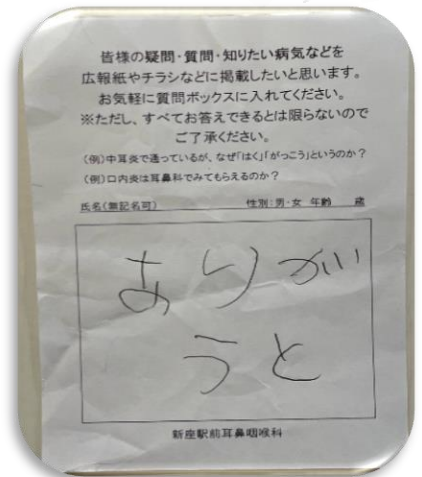 皆様の疑問・質問・知りたい病気などを
広報紙やチラシなどに掲載したいと思います。
お気軽に質問ボックスに入れてください。
※ただし、すべてお答えできるとは限らないので
ご了承ください。
(例)中耳炎で通っているが、なぜ「はく」「がっこう」というのか？
(例)口内炎は耳鼻科でみてもらえるのか？
氏名(無記名可) 性別：男・女 年齢 歳
ありが
うと
新座駅前耳鼻咽喉科